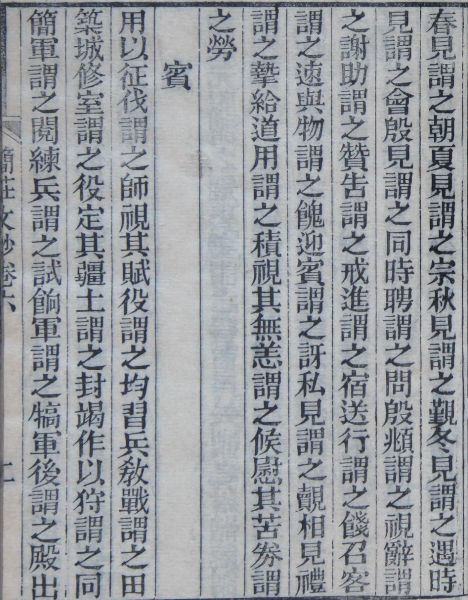 春見謂之朝夏見謂之宗秋見謂之覲冬見謂之遇時
見謂之會殷見謂之同時聘謂之問殷頫謂之視辭謂
之謝助謂之贊告謂之戒進謂之宿送行謂之餞召客
謂之速與物謂之餽迎賓謂之訝私見謂之覿相見禮
謂之摯給道用謂之積視其無恙謂之候慰其苦劵謂
之勞
賓
用以征伐謂之師視其賦役謂之均習兵敎戰謂之田
築城修室謂之役定其疆土謂之封竭作以狩謂之同
簡軍謂之閱練兵謂之試餉軍謂之犒軍後謂之殿出
簡莊文鈔卷六 二